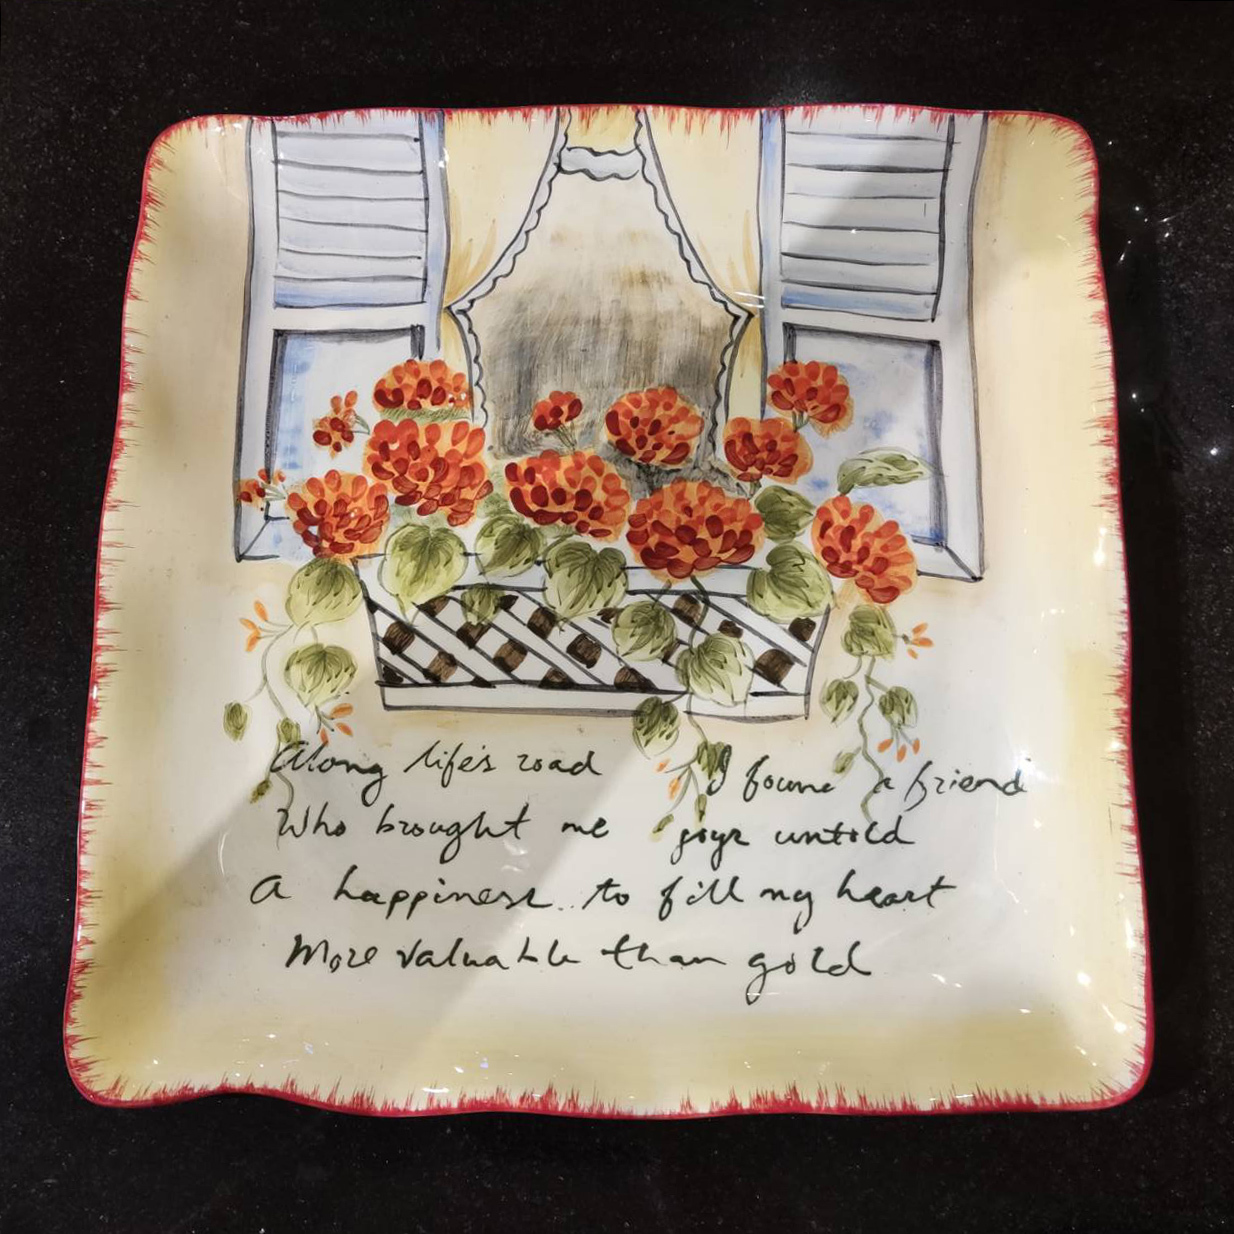 Along life's road I found a friend
Who brought me joys untold
A happiness to fill my heart
More valuable than gold